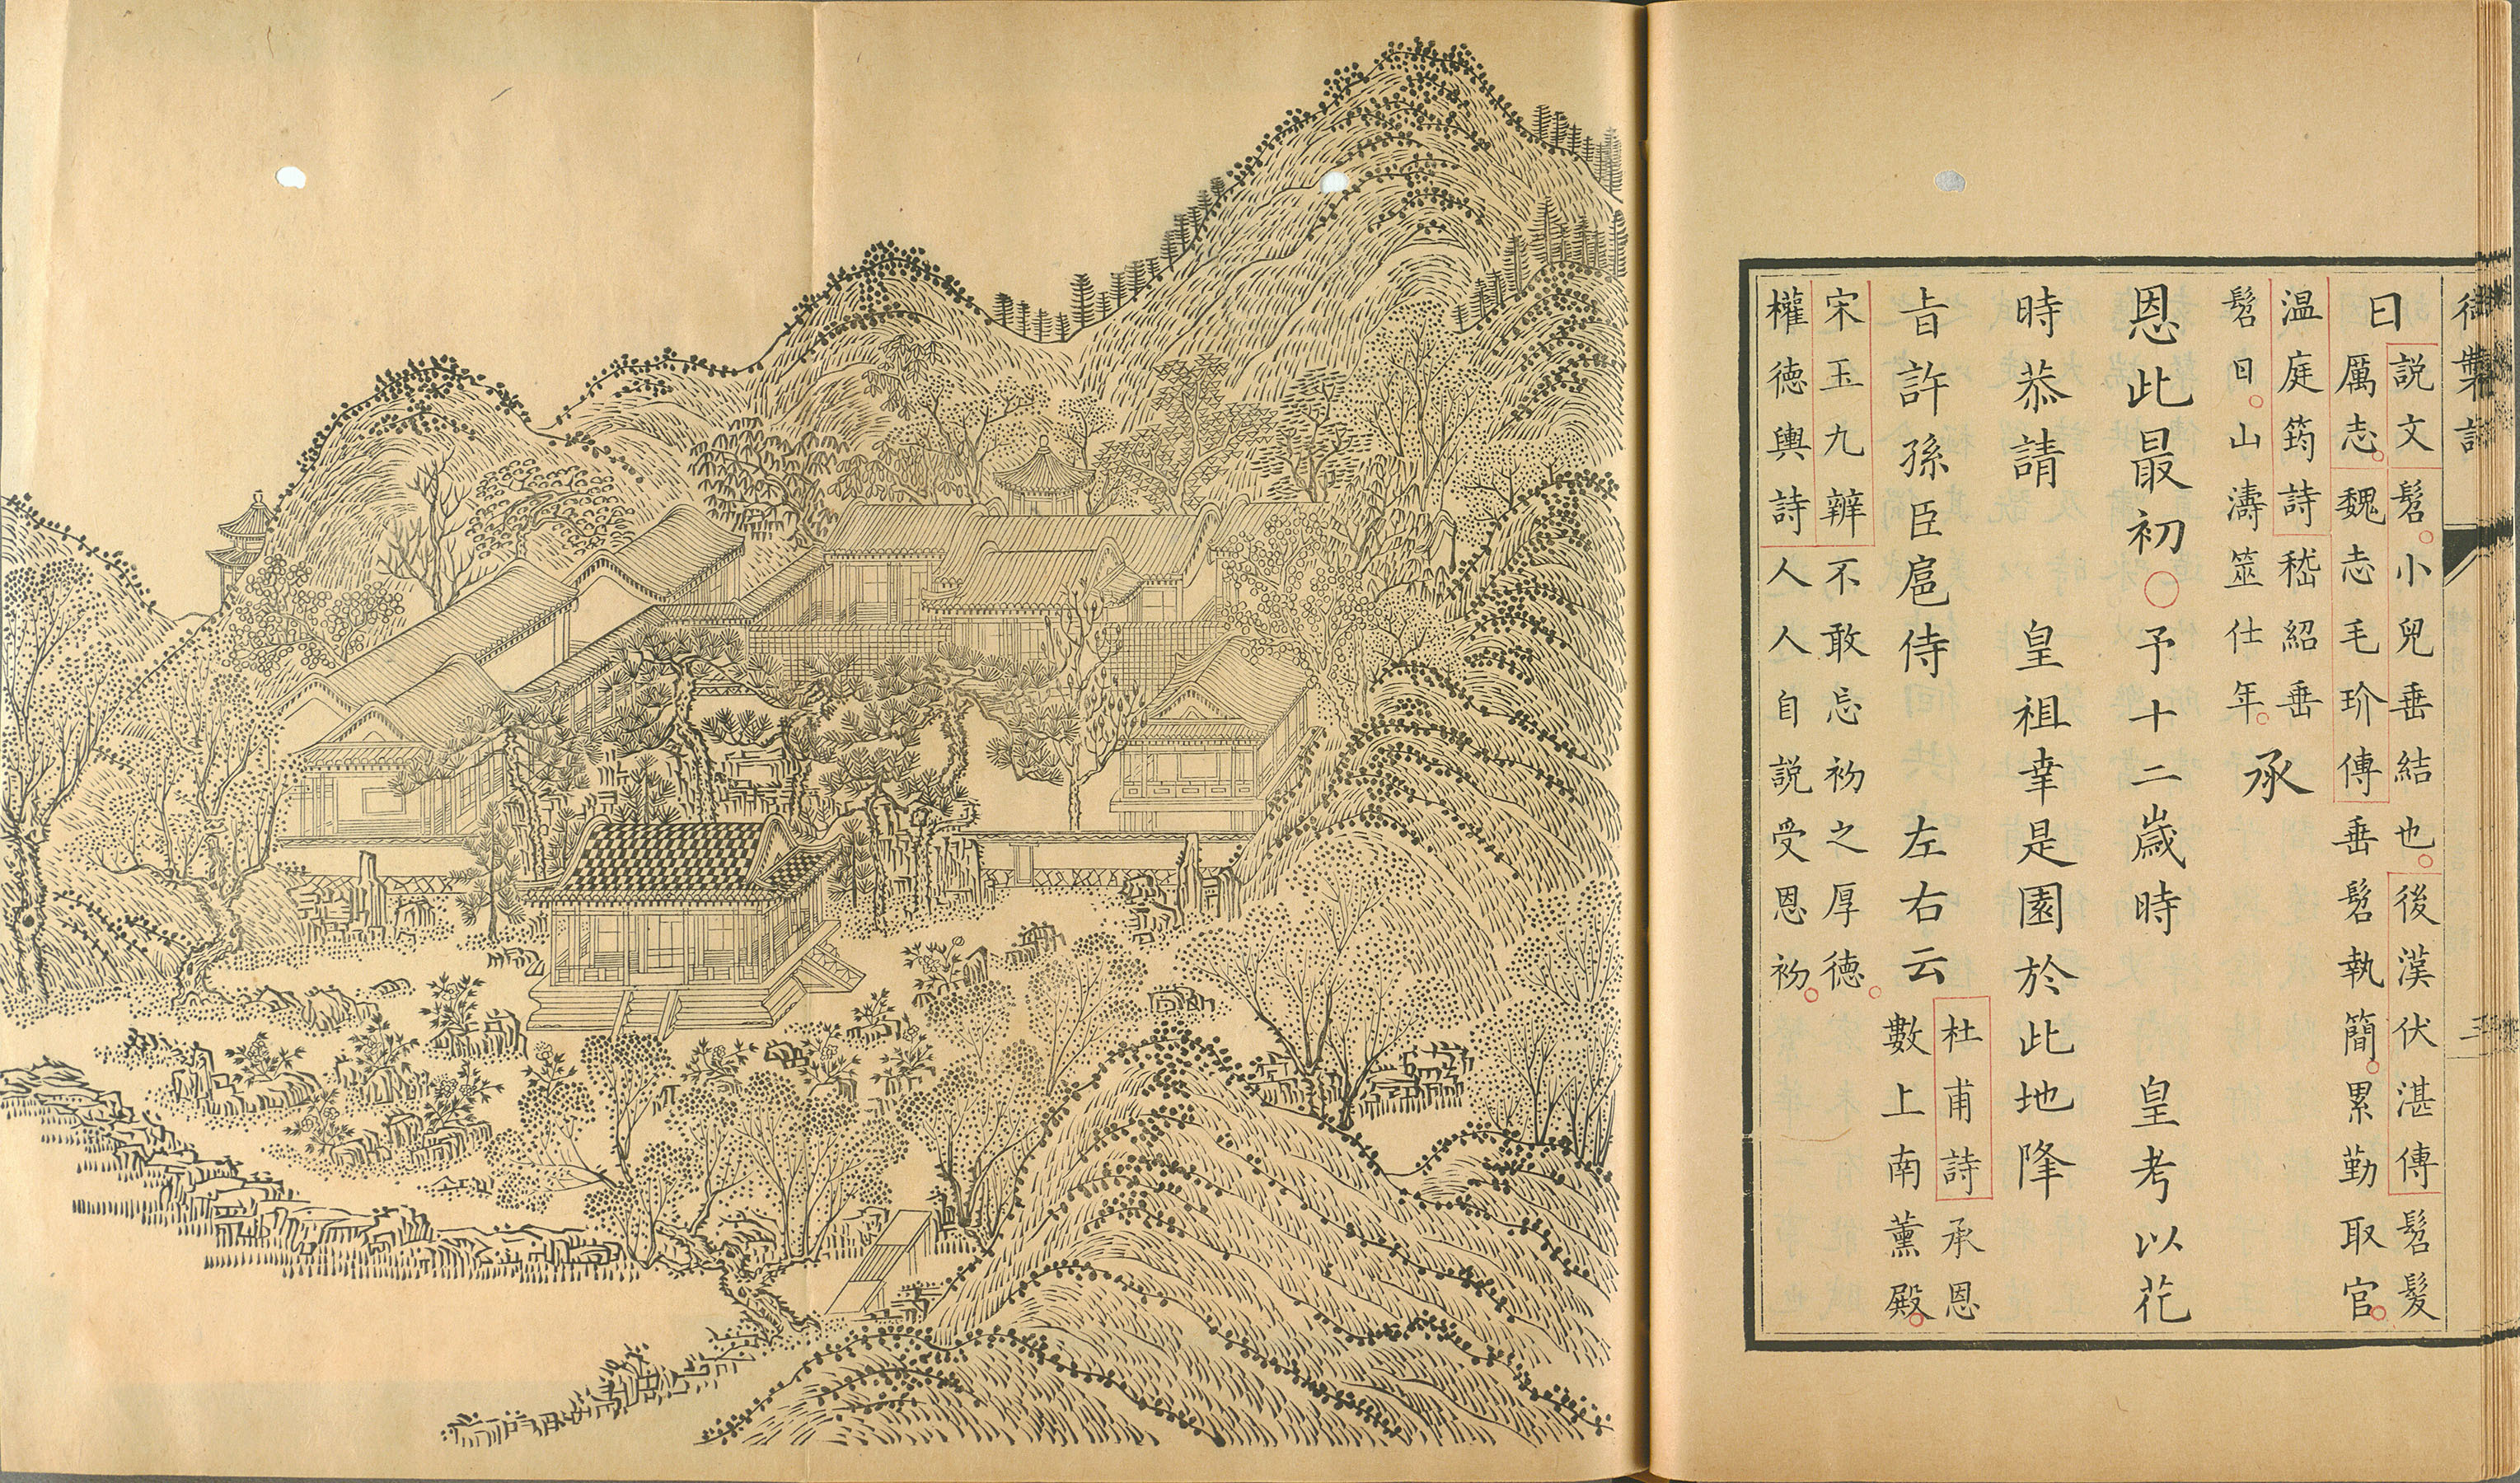 御製詩 三
曰
説文髫。小兒垂結也。後漢伏湛傳髫髪
厲志。魏志毛玠傳垂髫執簡。累勤取官。
温庭筠詩嵇紹垂
髫日。山濤筮仕年。
承
恩此最初○予十二歳時 皇考以花
時恭請 皇祖幸是園於此地降
旨許孫臣扈侍 左右云
杜甫詩承恩
數上南薰殿。
宋玉九辨不敢忘初之厚徳。
權徳輿詩人人自説受恩初。